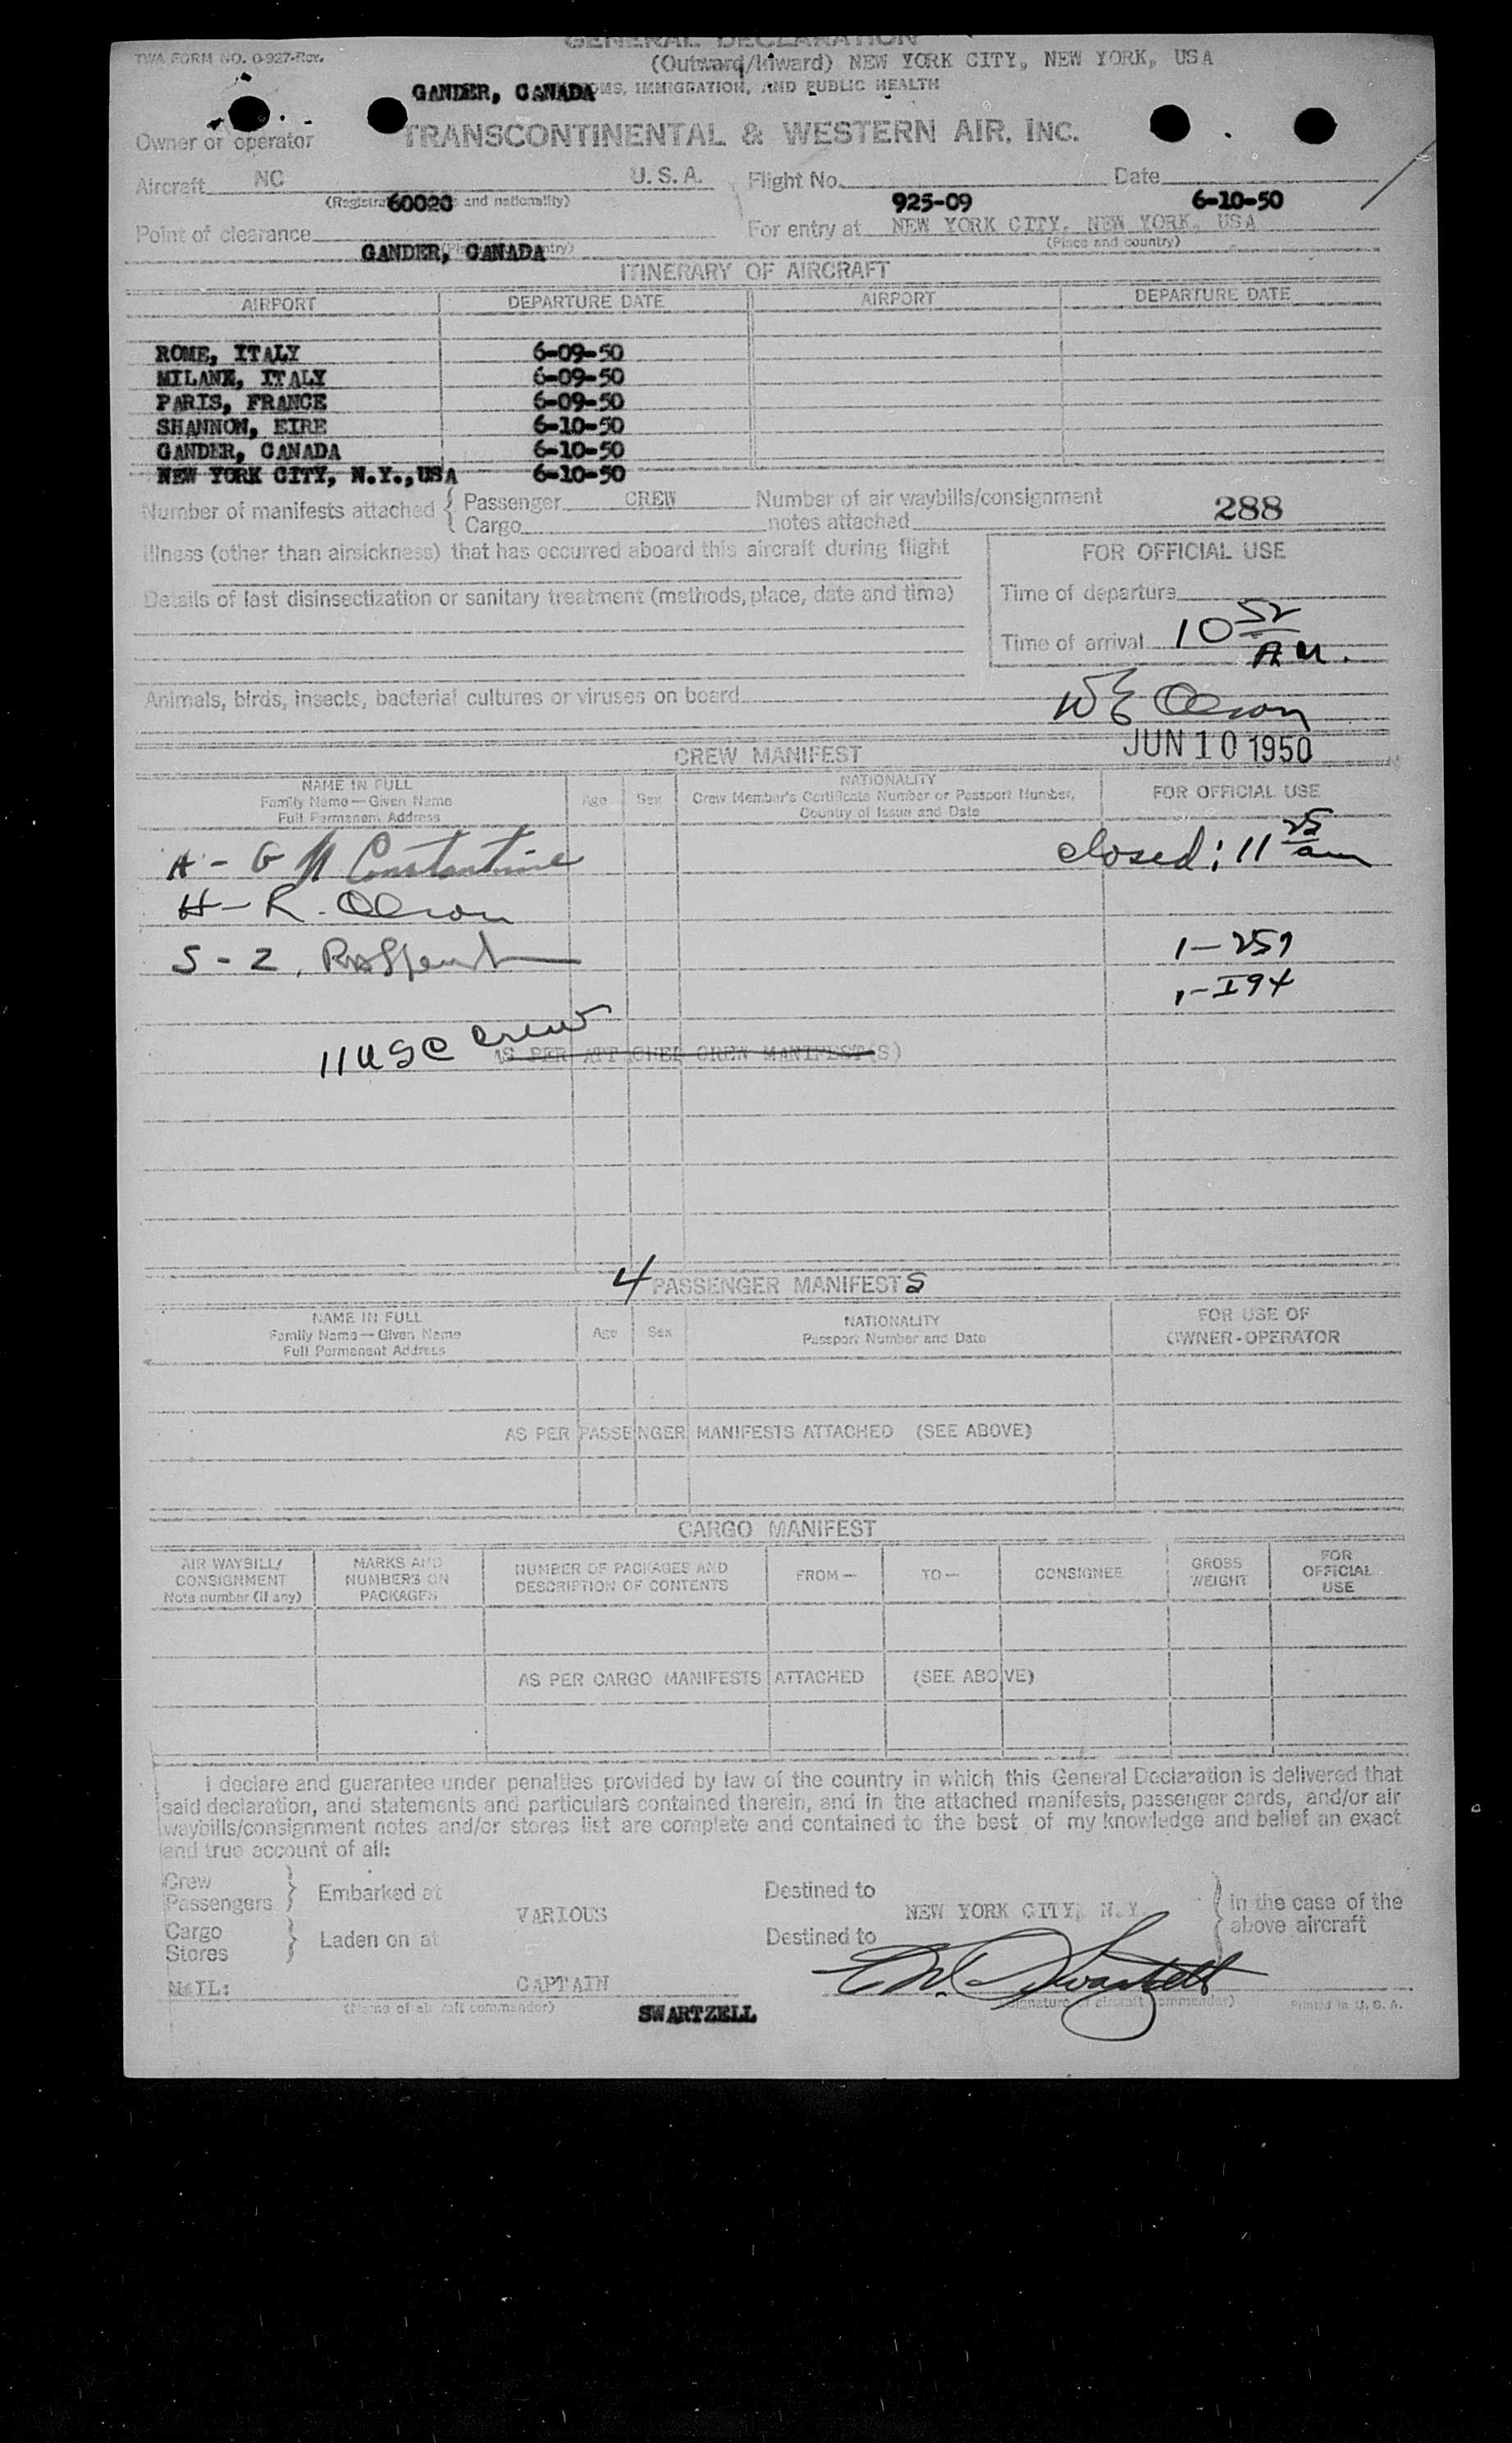 GENERAL DECLARATION
TWA FORM NO. 0-927-Rev.
(Outward/Inward) NEW YORK CITY, NEW YORK, USA
GANDER, CANADA OMS, IMMIGRATION, AND PUBLIC HEALTH
Owner or operator TRANSCONTINENTAL & WESTERN AIR, INC.
Aircraft NC U. S. A. Flight No. Date
(Registra 60020 and nationality) 925-09 6-10-50
Point of clearance For entry at NEW YORK CITY, NEW YORK, USA
GANDER, CANADA (Place and country)
ITINERARY OF AIRCRAFT
AIRPORT DEPARTURE DATE AIRPORT DEPARTURE DATE
ROME, ITALY 6-09-50
MILANE, ITALY 6-09-50
PARIS, FRANCE 6-09-50
SHANNON, EIRE 6-10-50
GANDER, CANADA 6-10-50
NEW YORK CITY, N.Y.,USA 6-10-50
Number of manifests attached { Passenger CREW Number of air waybills/consignment
Cargo notes attached 288
Illness (other than airsickness) that has occurred aboard this aircraft during flight
FOR OFFICIAL USE
Details of last disinsectization or sanitary treatment (methods, place, date and time)
Time of departure
Time of arrival 10 52 AM.
Animals, birds, insects, bacterial cultures or viruses on board
W E Olson
JUN 10 1950
CREW MANIFEST
NAME IN FULL
Family Name—Given Name
Full Permanent Address
Age Sex
NATIONALITY
Crew Member's Certificate Number or Passport Number,
Country of Issue and Date
FOR OFFICIAL USE
A - G M Constantine closed: 11 25 am
H - R. Olson
S - 2, 1-257
1-I94
11 USC Crew
AS PER ATTACHED CREW MANIFEST(S)
4 PASSENGER MANIFESTS
NAME IN FULL
Family Name—Given Name
Full Permanent Address
Age Sex
NATIONALITY
Passport Number and Date
FOR USE OF
OWNER-OPERATOR
AS PER PASSENGER MANIFESTS ATTACHED (SEE ABOVE)
CARGO MANIFEST
AIR WAYBILL/
CONSIGNMENT
Note number (if any)
MARKS AND
NUMBERS ON
PACKAGES
NUMBER OF PACKAGES AND
DESCRIPTION OF CONTENTS
FROM—
TO—
CONSIGNEE
GROSS
WEIGHT
FOR
OFFICIAL
USE
AS PER CARGO MANIFESTS ATTACHED (SEE ABOVE)
I declare and guarantee under penalties provided by law of the country in which this General Declaration is delivered that
said declaration, and statements and particulars contained therein, and in the attached manifests, passenger cards, and/or air
waybills/consignment notes and/or stores list are complete and contained to the best of my knowledge and belief an exact
and true account of all:
Crew
Passengers } Embarked at VARIOUS Destined to NEW YORK CITY, N.Y. } in the case of the
above aircraft
Cargo
Stores } Laden on at Destined to
MAIL: CAPTAIN E W Swartzell
(Name of aircraft commander) SWARTZELL (Signature of aircraft commander) Printed in U. S. A.